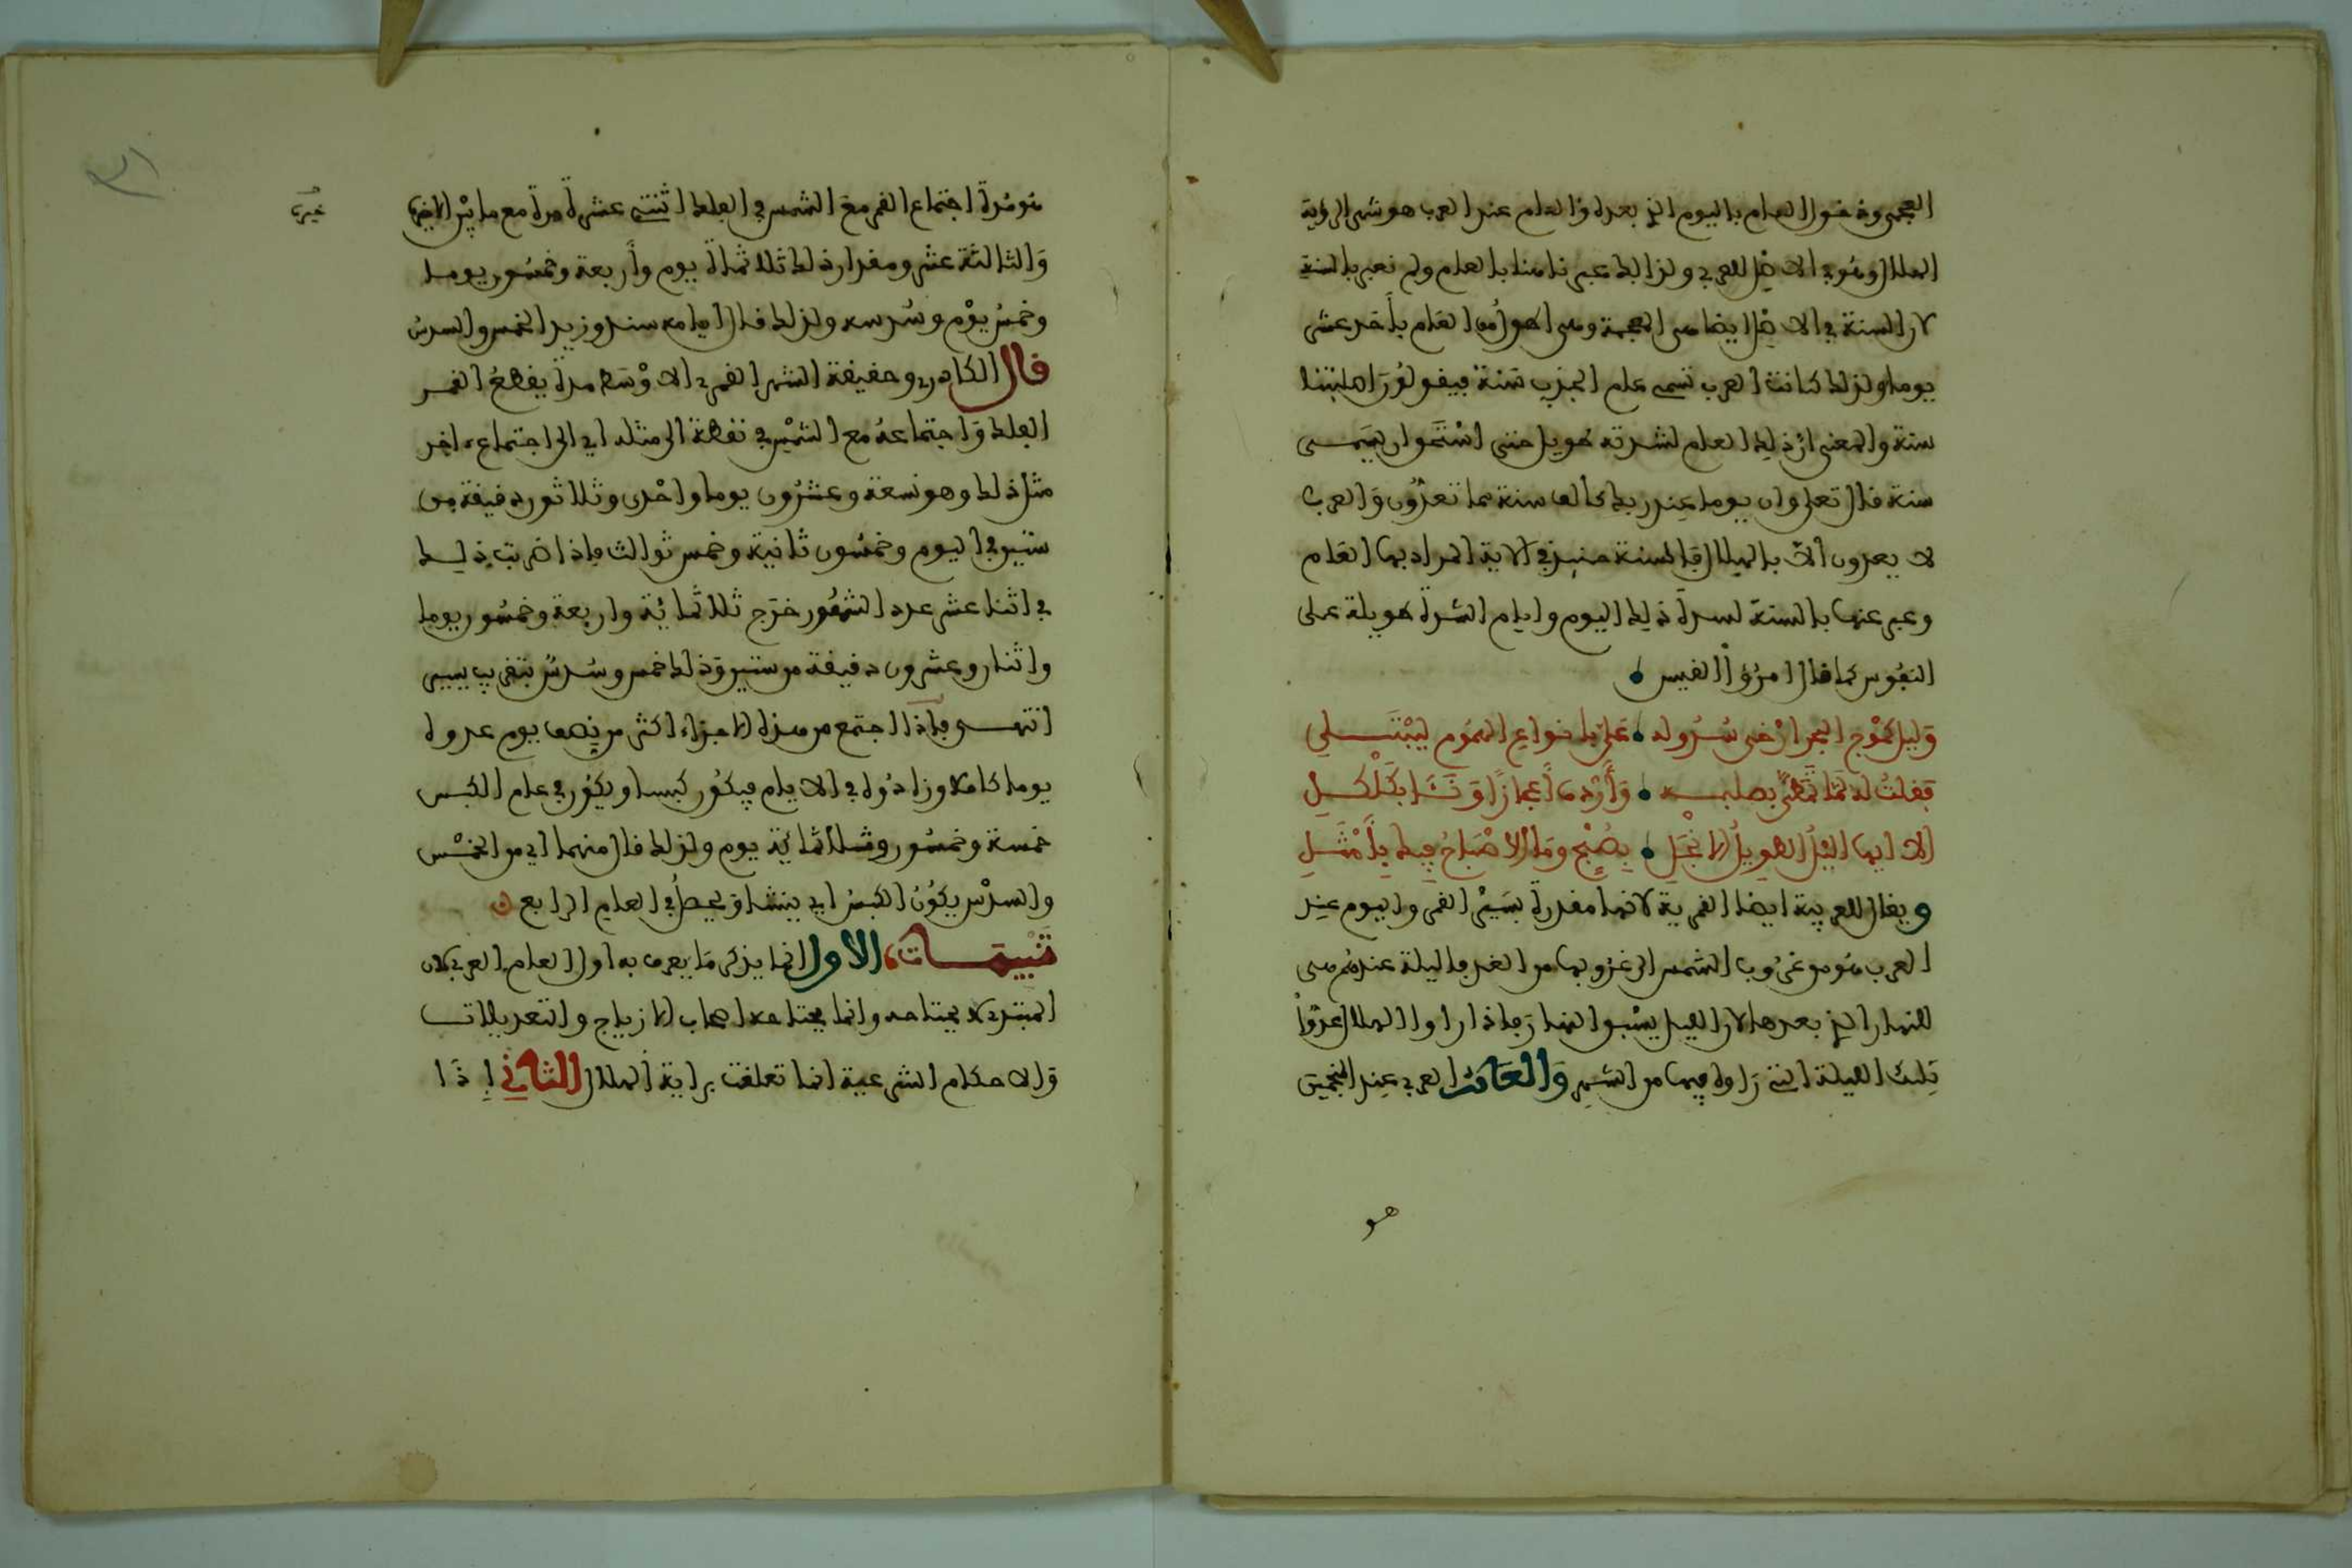 العجمي ودخول العام باليوم الذي بعده والعام عند العرب هو شهر الرؤية
الهلال وهو في الاصل للعربي ولذالك عبر نا هنا بالعام ولم نعبر بالسنة
لان السنة في الاصل ايضا هي العجمية وهي اطول من العام بأحد عشر
يوما ولذلك كانت العرب تسمى عام الجذب سنة فيقولون اصابتنا
سنة والمعنى ان ذلك العام لشدته طويل حتى استحق ان يسمى
سنة قال تعلى وان يوما عند ربك كألف سنة مما تعدون والعرب
لا يعدون الا بالهلال فالسنة حينئذ في الاية المراد بها العام
وعبر عنها بالسنة لشدة ذلك اليوم وايام الشدة طويلة على
النفوس كما قال امرؤ القيس
وليل كموج البحر ارخى سدوله علي بانواع الهموم ليبتلي
فقلت له لما تمطى بصلبه وأردف أعجازا وناء بكلكل
الا ايها الليل الطويل الا انجل بصبح وما الاصباح فيك بأمثل
ويقال للعربية ايضا القمرية لانها مقدرة بسير القمر واليوم عند
العرب هو من غروب الشمس الى غروبها من الغد فاليلة عندهم هي
للنهار الذي بعدها لان الليل يسبق النهار فاذا راوا الهلال عدوا
تلك الليلة التي راوه فيها من الشهر والعام العربي عند المنجمين
هو
هو مدة اجتماع القمر مع الشمس في الفلك اثنتي عشرة مرة مع ما بين الاخيرة
خير
والثالثة عشر ومقدار ذلك ثلاثماىة يوم وأربعة وخمسون يوما
وخمس يوم وسدسه ولذلك قال ايامه سند وزيد الخمس والسدس
قال الكادري وحقيقة الشهر القمري الاوسط مدة يقطع القمر
الفلك واجتماعه مع الشمس في نقطة الى مثله اي الى اجتماع ءاخر
مثل ذلك وهو تسعة وعشرون يوما واحدى وثلاثون دقيقة من
ستين في اليوم وخمسون ثانية وخمس ثوالث فاذا ضربت ذلك
في اثنا عشر عدد الشهور خرج ثلاثمائة واربعة وخمسون يوما
واثنان وعشرون دقيقة من ستين وذلك خمس وسدس بتقريب يسير
انتهى فاذا اجتمع من هذه الاجزاء اكثر من نصف يوم عد وه
يوما كاملا وزادوه في الايام فيكون كبسا ويكون في عام الكبس
خمسة وخمسون وثلاثمائة يوم ولذلك قال منهما اي من الخمس
والسدس يكون الكبس اي ينشا ويحصل في العام الرابع
تنبيهات الاول انما يذكر ما يعرف به اول العام العربي لان
المبتدي لا يحتاجه وانما يحتاجه اصحاب الازياج والتعديلات
والاحكام الشرعية انما تعلقت براية الهلال الثاني اذا